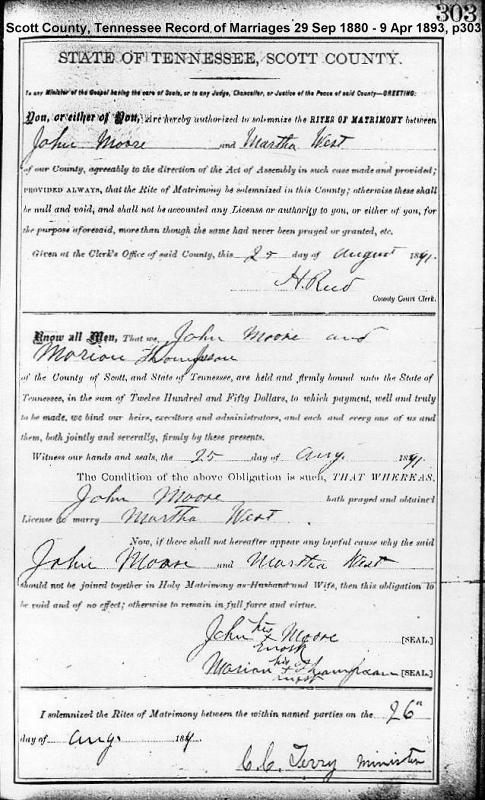 303
Scott County, Tennessee Record of Marriages 29 Sep 1880 - 9 Apr 1893, p303
STATE OF TENNESSEE, SCOTT COUNTY.
To any Minister of the Gospel having the care of Souls, or to any Judge, Chancellor, or Justice of the Peace of said County—GREETING:
You, or either of You, are hereby authorized to solemnize the RITES OF MATRIMONY between
John Moore and Martha West
of our County, agreeably to the direction of the Act of Assembly in such case made and provided;
PROVIDED ALWAYS, that the Rite of Matrimony be solemnized in this County; otherwise these shall
be null and void, and shall not be accounted any License or authority to you, or either of you, for
the purpose aforesaid, more than though the same had never been prayed or granted, etc.
Given at the Clerk's Office of said County, this 25 day of August 1891.
H. Reed
County Court Clerk.
Know all Men, That we, John Moore and
Marion Thompson
of the County of Scott, and State of Tennessee, are held and firmly bound unto the State of
Tennessee, in the sum of Twelve Hundred and Fifty Dollars, to which payment, well and truly
to be made, we bind our heirs, executors and administrators, and each and every one of us and
them, both jointly and severally, firmly by these presents.
Witness our hands and seals, the 25 day of Aug. 1891.
The Condition of the above Obligation is such, THAT WHEREAS,
John Moore hath prayed and obtained
License to marry Martha West.
Now, if there shall not hereafter appear any lawful cause why the said
John Moore and Martha West
should not be joined together in Holy Matrimony as Husband and Wife, then this obligation to
be void and of no effect; otherwise to remain in full force and virtue.
John his x mark Moore [SEAL.]
Marion his x mark Thompson [SEAL.]
I solemnized the Rites of Matrimony between the within named parties on the 26"
day of Aug. 1891.
C. C. Terry Minister